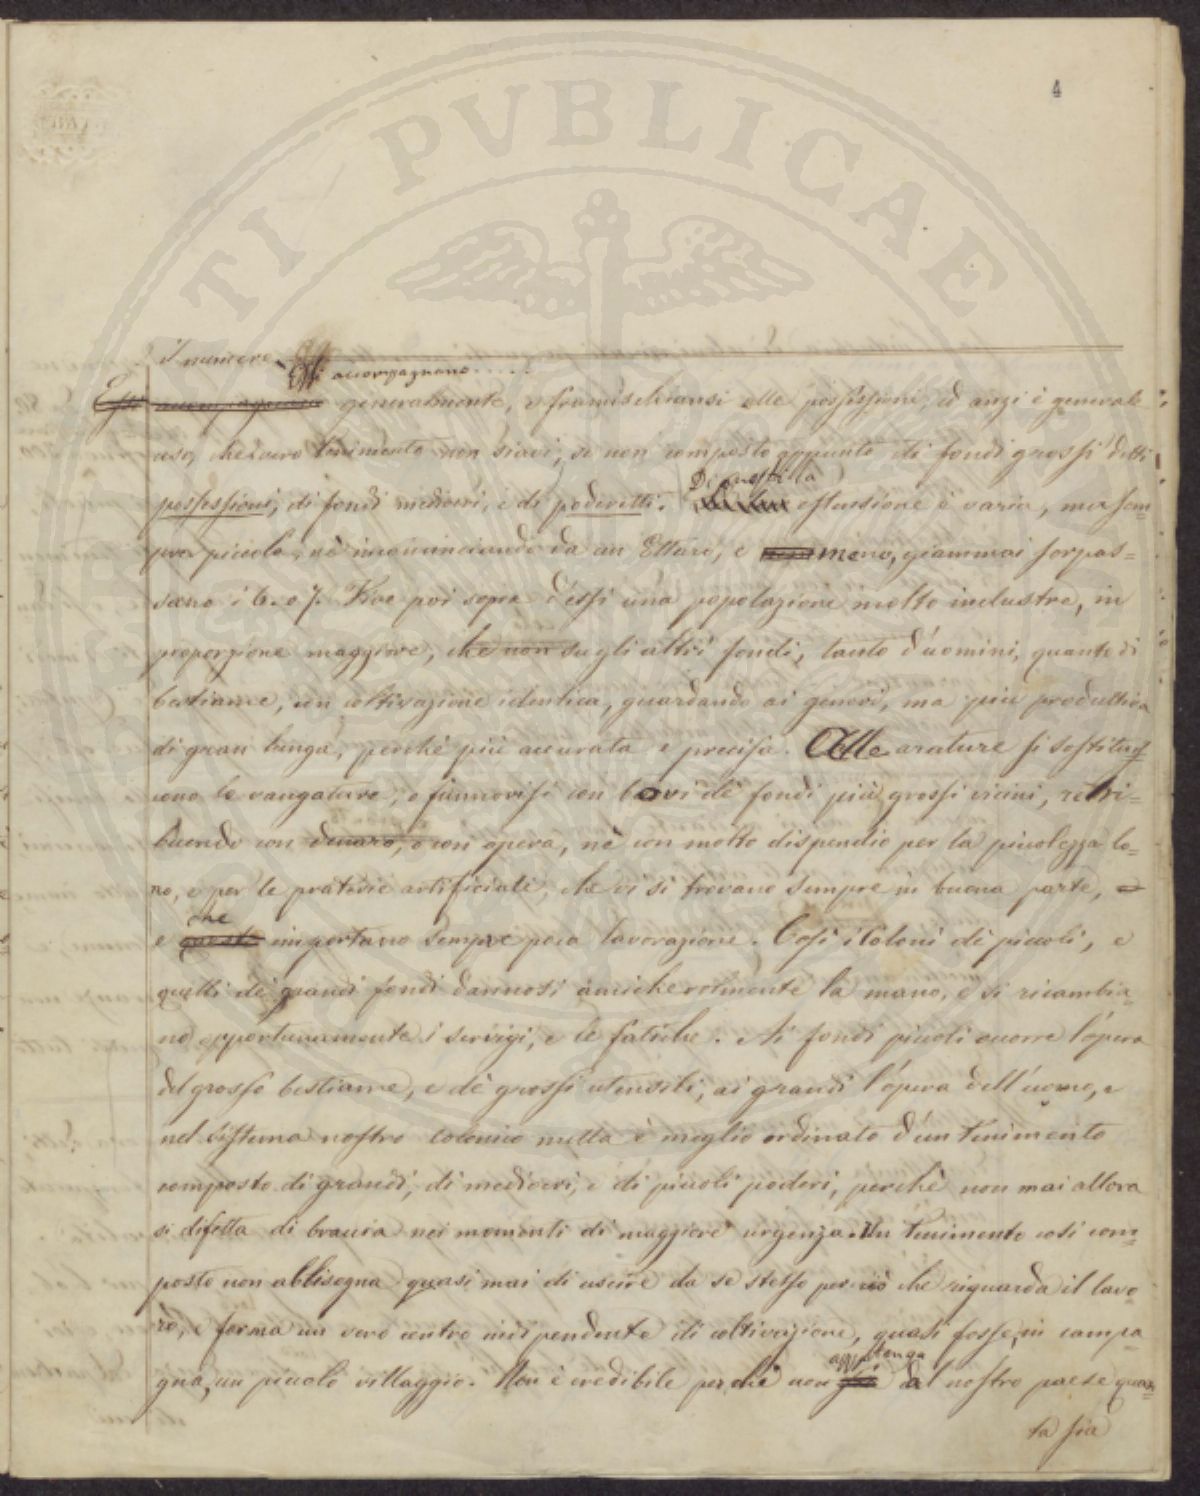 4
PVBLICAE
il numero
Essi accompagnano.....
Essi accompagnano generalmente, e framischiansi alle possessioni, ed anzi è generale
uso, che vero tenimento non siavi, se non composto appunto di fondi grossi detti
possessioni, di fondi mediocri, e di poderetti. Di questi la estensione è varia, ma sem=
pre piccola, nè incominciando da un Ettaro, e meno, giammai sorpas=
sano i 6. o 7. Vive poi sopra d'essi una popolazione molto industre, in
proporzione maggiore, che non sugli altri fondi, tanto d'uomini, quanto di
bestiame, con coltivazione identica, guardando ai generi, ma più produttiva
di gran lunga, perchè più accurata e precisa. Alle arature si sostitui=
scono le vangature, o fannovisi con bovi de' fondi più grossi vicini, retri=
buendo con denaro, o con opera, nè con molto dispendio per la piccolezza lo=
ro, e per le praterie artificiali, che vi si trovano sempre in buona parte, e
e che importano sempre poca lavorazione. Così i Coloni di piccoli, e
quelli de' grandi fondi dannosi amichevolmente la mano, e si ricambia=
no opportunamente i servigi, e le fatiche. Ai fondi piccoli occorre l'opera
del grosso bestiame, e de' grossi utensili, ai grandi l'opera dell'uomo, e
nel sistema nostro colonico nulla è meglio ordinato d'un tenimento
composto di grandi, di mediocri, e di piccoli poderi, perchè non mai allora
si difetta di braccia nei momenti di maggiore urgenza. Un tenimento così com=
posto non abbisogna quasi mai di uscire da se stesso per ciò che riguarda il lavo=
ro, e forma un vero centro indipendente di coltivazione, quasi fosse, in campa=
gna, un piccolo villaggio. Non è credibile perchè non appartenga al nostro paese quan=
ta sia